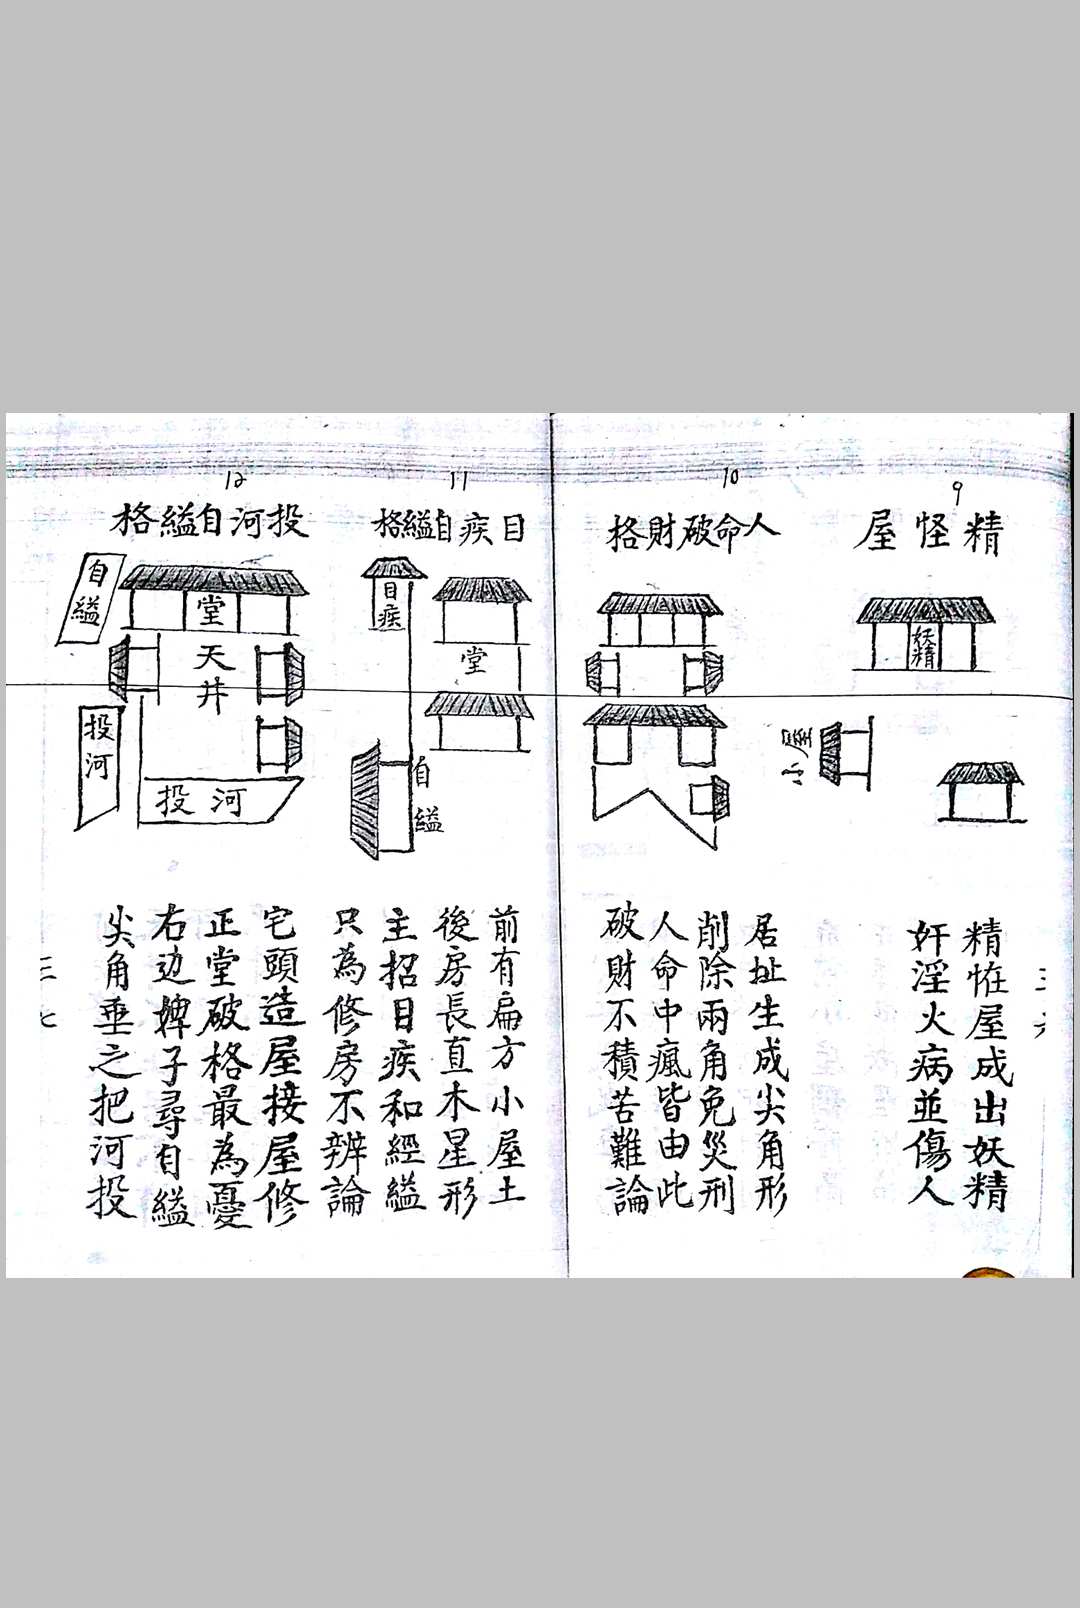 9
精怪屋
妖精
小屋
精怪屋成出妖精
奸淫火病並傷人
10
人命破財格
居址生成尖角形
削除兩角免災刑
人命中瘋皆由此
破財不積苦難論
11
目疾自縊格
目疾
堂
自縊
前有扁方小屋土
後房長直木星形
主招目疾和經縊
只為修房不辨論
12
投河自縊格
自縊
堂
天井
投河
投河
宅頭造屋接屋修
正堂破格最為憂
右边婢子尋自縊
尖角垂之把河投
三七